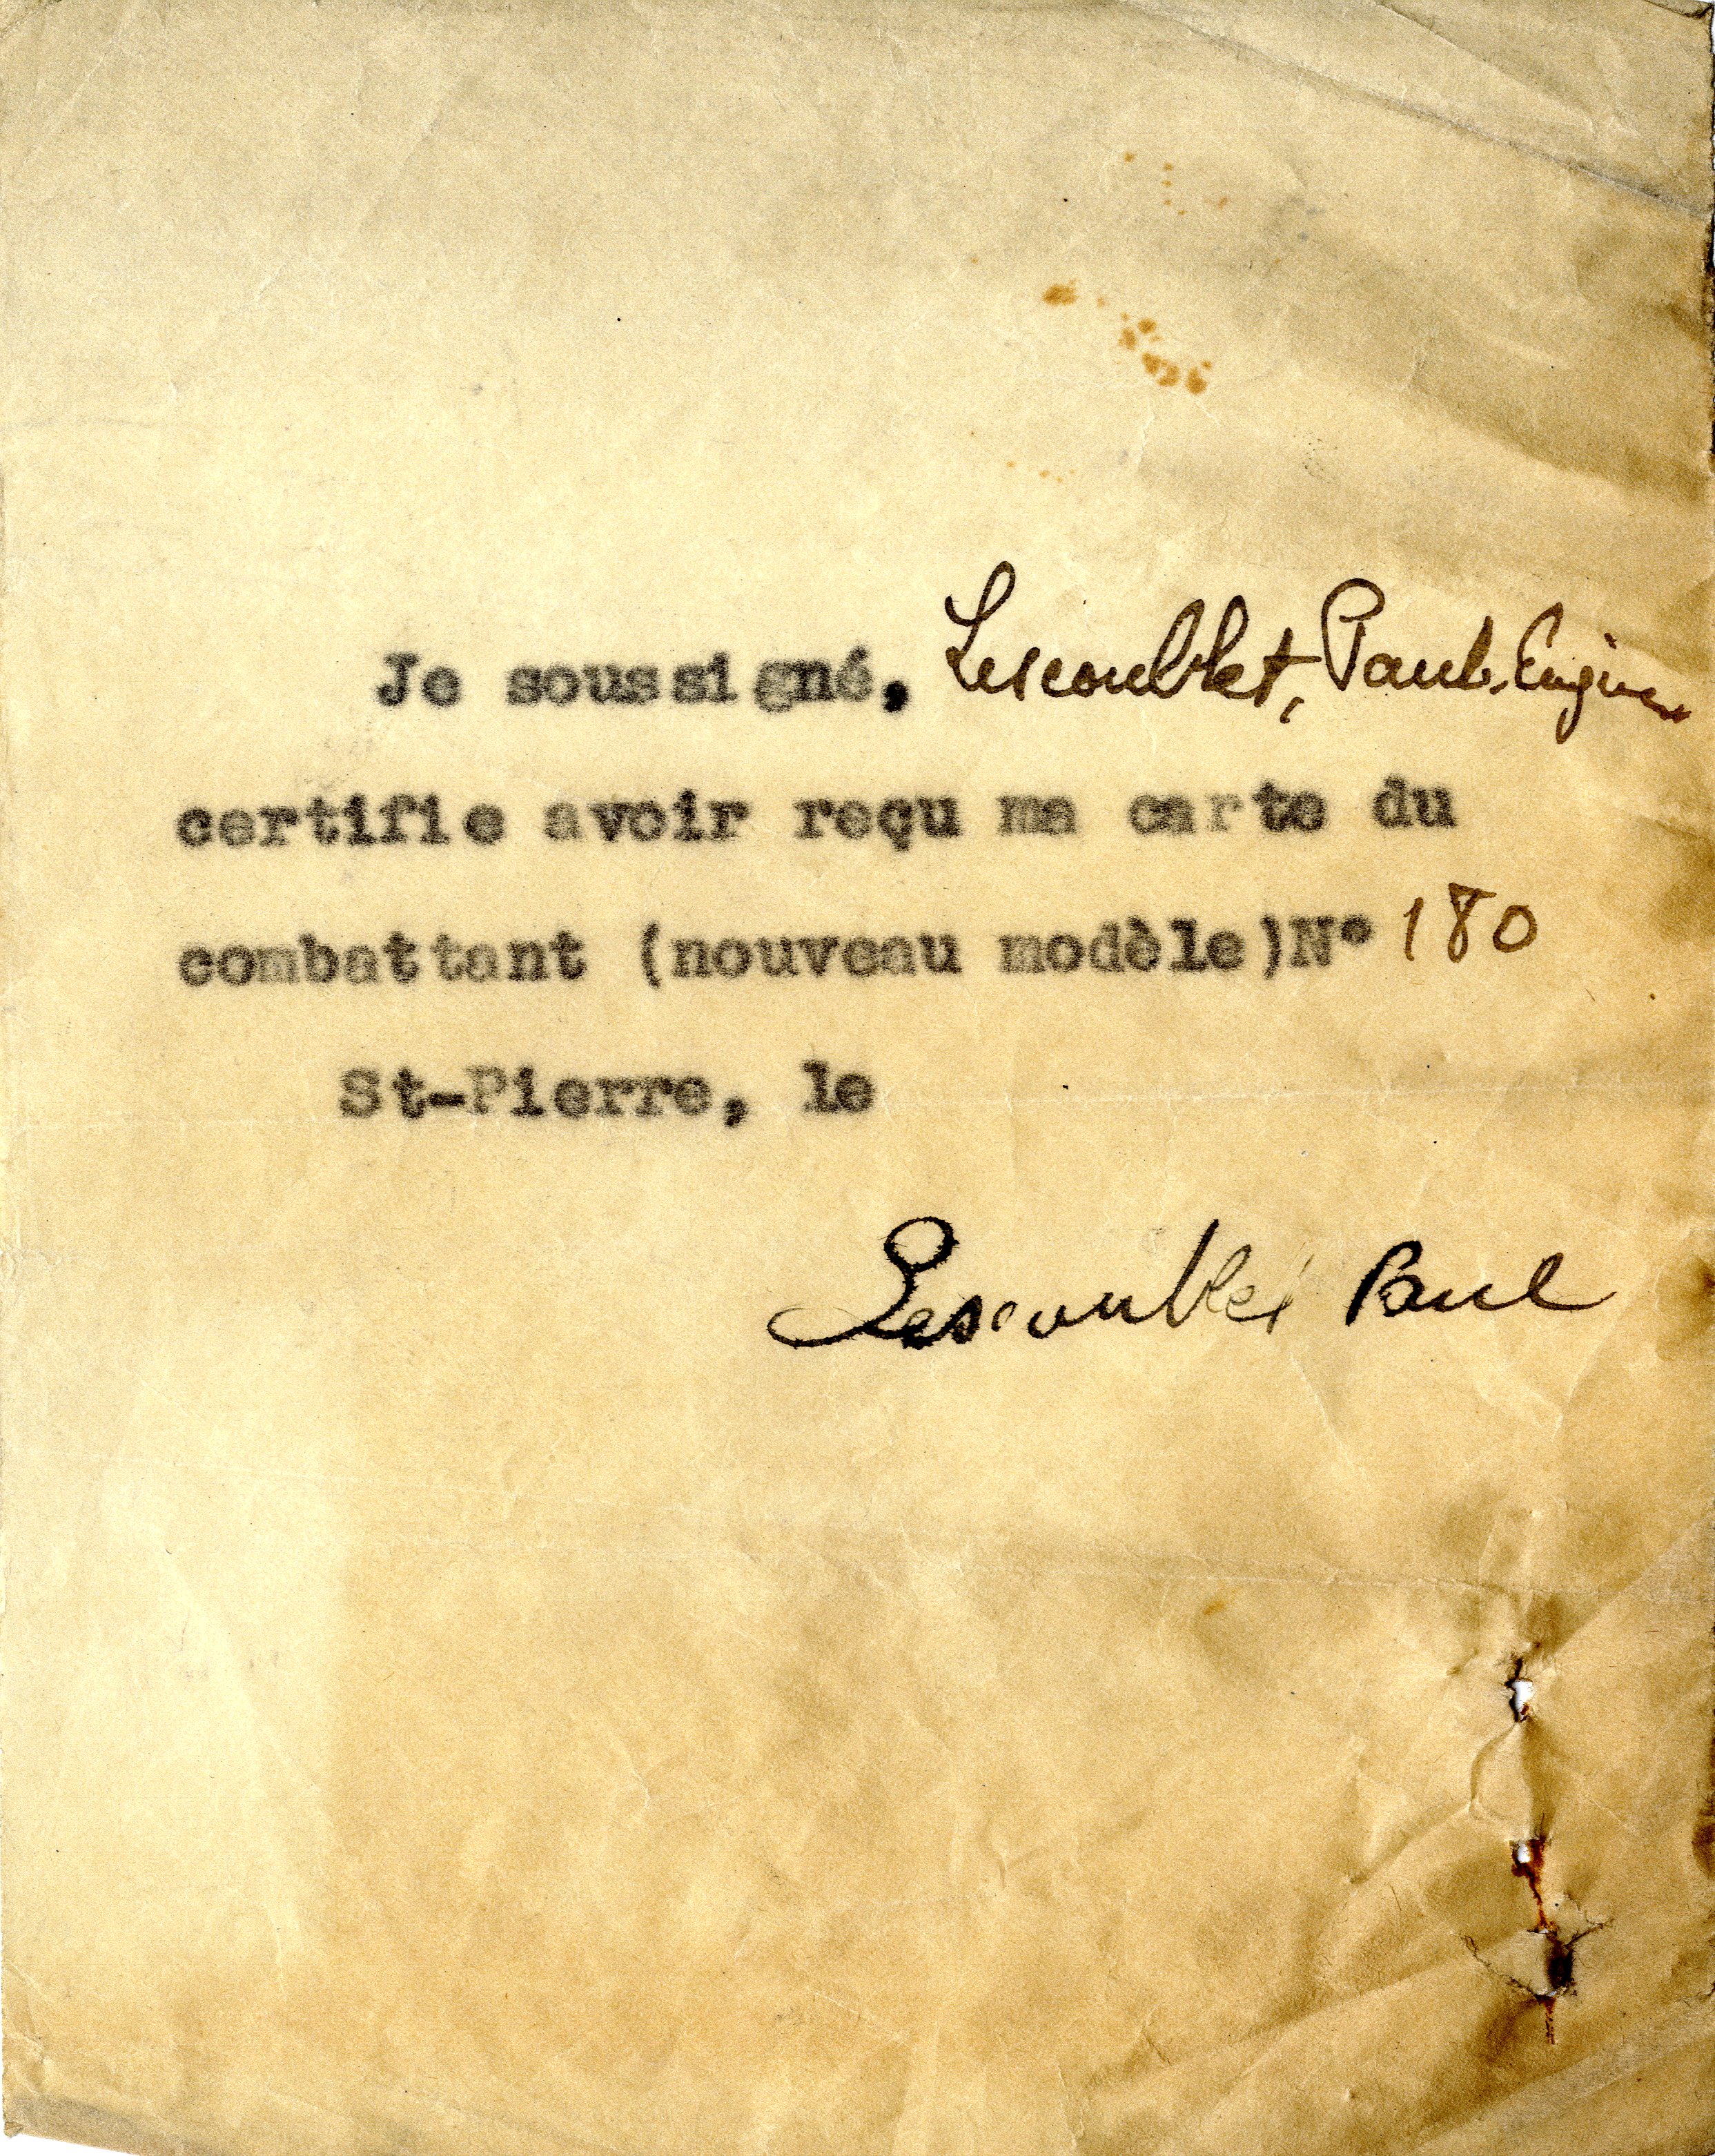 Je soussigné, Lescoublet, Paul. Eugène
certifie avoir reçu ma carte du
combattant (nouveau modèle)N° 180
St-Pierre, le
Lescoublet Paul